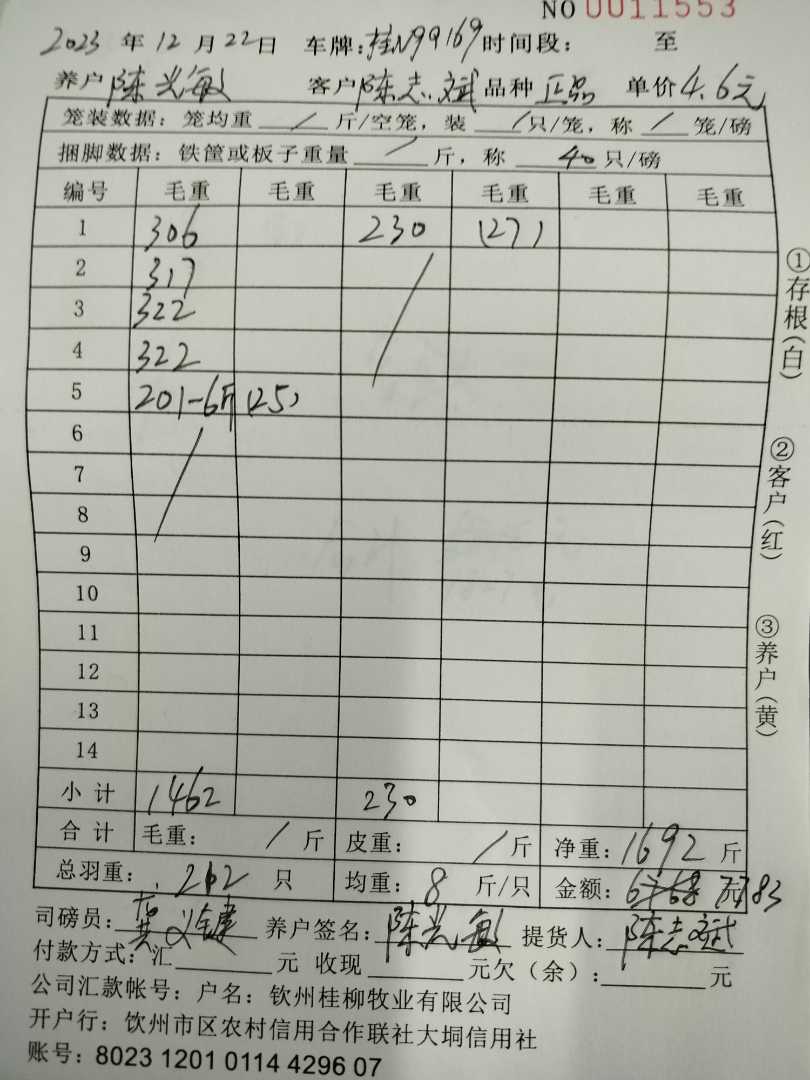 NO 0011553
2023 年 12 月 22 日 车牌:桂N99169 时间段: 至
养户 陈光敏 客户 陈志斌 品种 正品 单价 4.6元
笼装数据:笼均重 / 斤/空笼,装 / 只/笼,称 / 笼/磅
捆脚数据:铁筐或板子重量 / 斤,称 40 只/磅
编号 毛重 毛重 毛重 毛重 毛重 毛重
1 306 230 (27)
2 317
3 322
4 322
5 201-6斤 (25)
6
7
8
9
10
11
12
13
14
小计 1462 230
合计 毛重: / 斤 皮重: / 斤 净重:1692 斤
总羽重: 212 只 均重: 8 斤/只 金额: 7783
司磅员: 黄义健 养户签名: 陈光敏 提货人: 陈志斌
付款方式:汇 元 收现 元欠(余): 元
公司汇款帐号:户名:钦州桂柳牧业有限公司
开户行:钦州市区农村信用合作联社大垌信用社
账号:8023 1201 0114 4296 07
①存根(白)
②客户(红)
③养户(黄)